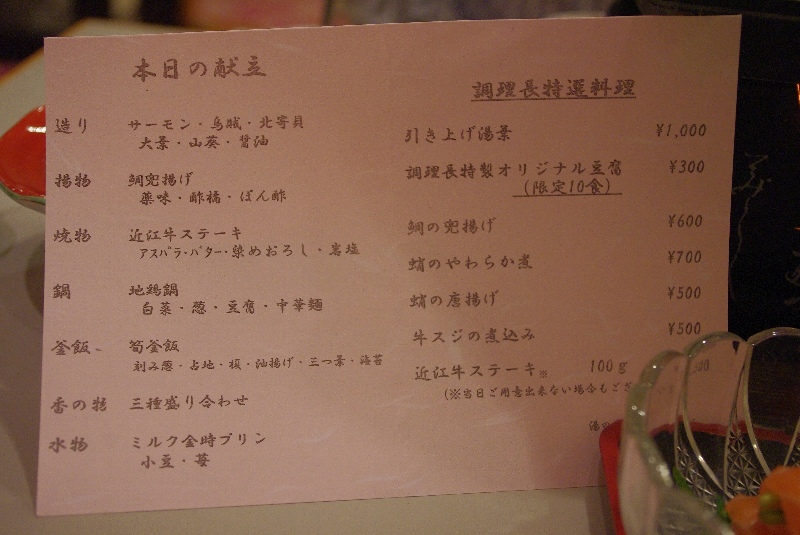 本日の献立
造り サーモン・烏賊・北寄貝
大葉・山葵・醤油
揚物 鯛兜揚げ
薬味・酢橘・ぽん酢
焼物 近江牛ステーキ
アスパラ・バター・染めおろし・岩塩
鍋 地鶏鍋
白菜・葱・豆腐・中華麺
釜飯 筍釜飯
刻み葱・占地・榎・油揚げ・三つ葉・海苔
香の物 三種盛り合わせ
水物 ミルク金時プリン
小豆・苺
調理長特選料理
引き上げ湯葉 ¥1,000
調理長特製オリジナル豆腐 ¥300
(限定10食)
鯛の兜揚げ ¥600
蛸のやわらか煮 ¥700
蛸の唐揚げ ¥500
牛スジの煮込み ¥500
近江牛ステーキ※ 100g
(※当日ご用意出来ない場合もござ
湯の